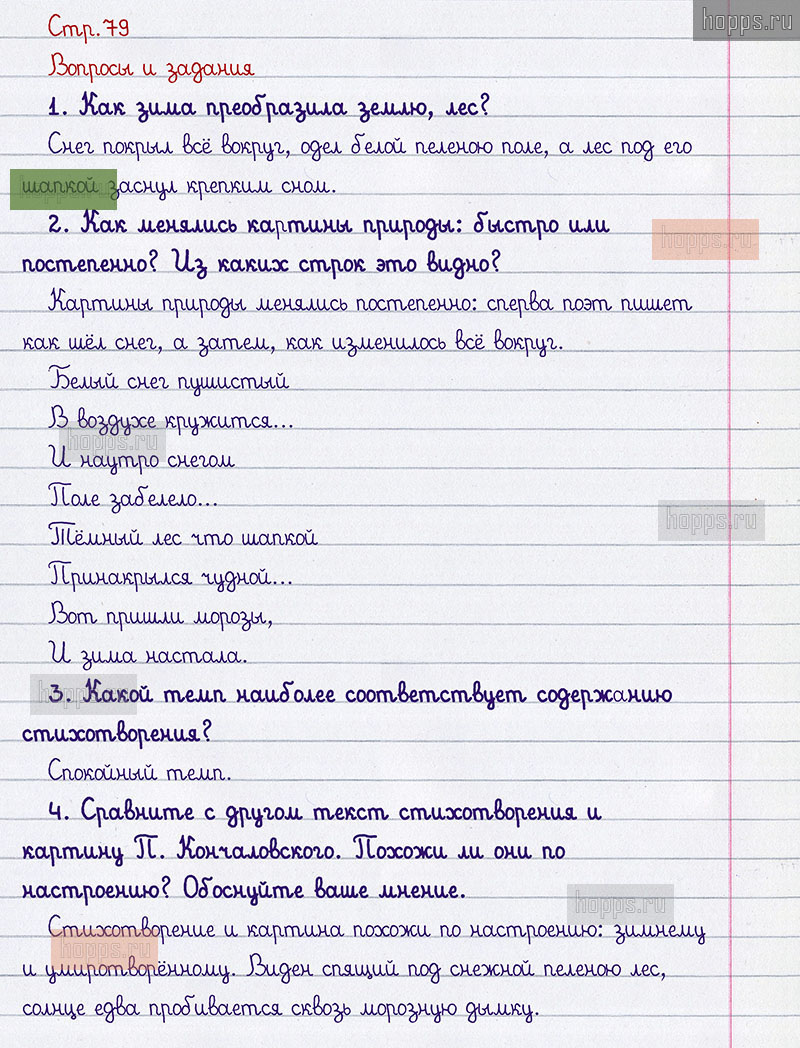 hopps.ru
Стр.79
Вопросы и задания
1. Как зима преобразила землю, лес?
Снег покрыл всё вокруг, одел белой пеленою поле, а лес под его
шапкой заснул крепким сном.
2. Как менялись картины природы: быстро или
hopps.ru
постепенно? Из каких строк это видно?
Картины природы менялись постепенно: сперва поэт пишет
как шёл снег, а затем, как изменилось всё вокруг.
Белый снег пушистый
В воздухе кружится...
hopps.ru
И наутро снегом
Поле забелело...
hopps.ru
Тёмный лес что шапкой
Принакрылся чудной...
Вот пришли морозы,
И зима настала.
3. Какой темп наиболее соответствует содержанию
стихотворения?
Спокойный темп.
4. Сравните с другом текст стихотворения и
картину П. Кончаловского. Похожи ли они по
настроению? Обоснуйте ваше мнение.
hopps.ru
Стихотворение и картина похожи по настроению: зимнему
hopps.ru
и умиротворённому. Виден спящий под снежной пеленою лес,
солнце едва пробивается сквозь морозную дымку.